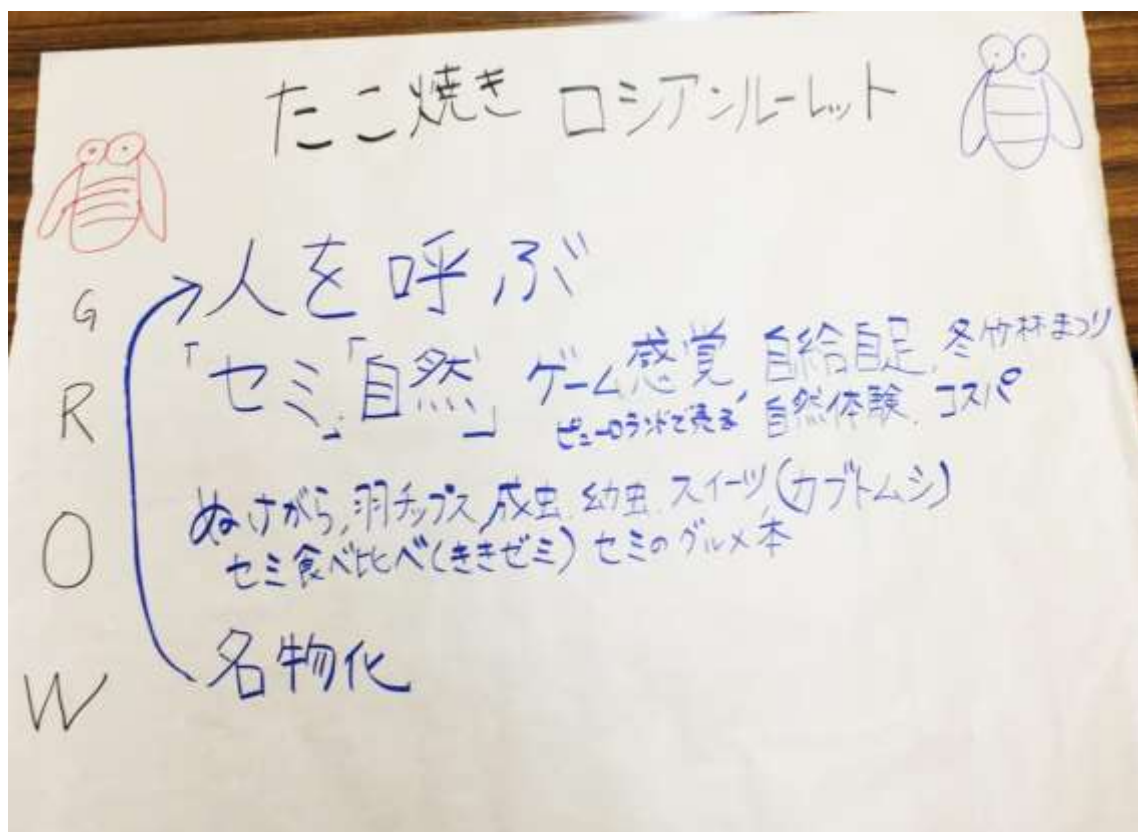 たこ焼き ロシアンルーレット
G 人を呼ぶ
R 「セミ」「自然」 ゲーム感覚, 自給自足, 冬竹林まつり
ピューロランドで売る 自然体験, コスパ
O ぬけがら, 羽チップス, 成虫, 幼虫, スイーツ, (カブトムシ)
セミ食べ比べ(ききゼミ) セミのグルメ本
W 名物化